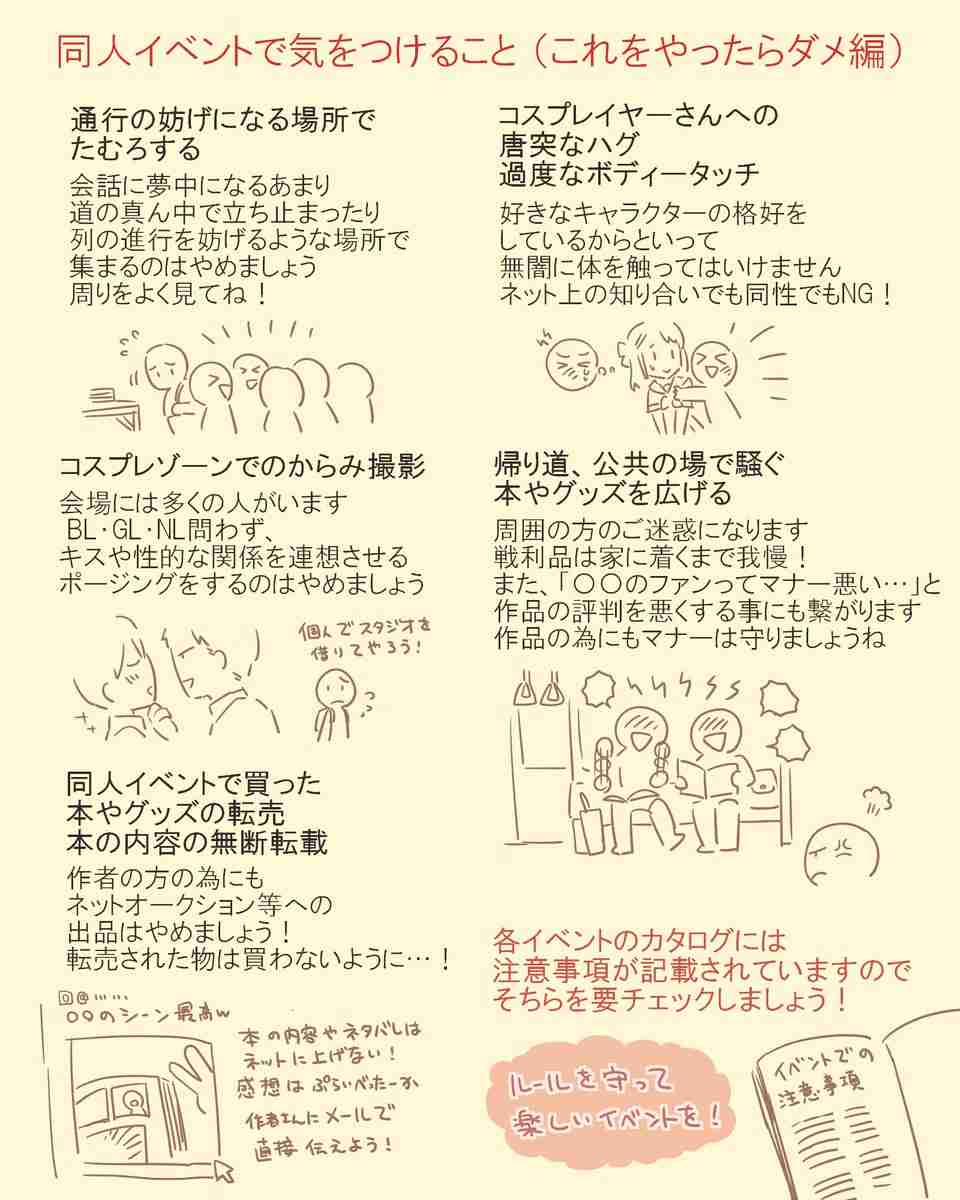 同人イベントで気をつけること（これをやったらダメ編）
通行の妨げになる場所で
たむろする
会話に夢中になるあまり
道の真ん中で立ち止まったり
列の進行を妨げるような場所で
集まるのはやめましょう
周りをよく見てね！
コスプレイヤーさんへの
唐突なハグ
過度なボディータッチ
好きなキャラクターの格好を
しているからといって
無闇に体を触ってはいけません
ネット上の知り合いでも同性でもNG！
コスプレゾーンでのからみ撮影
会場には多くの人がいます
BL･GL･NL問わず、
キスや性的な関係を連想させる
ポージングをするのはやめましょう
個人でスタジオを
借りてやろう！
帰り道、公共の場で騒ぐ
本やグッズを広げる
周囲の方のご迷惑になります
戦利品は家に着くまで我慢！
また、「〇〇のファンってマナー悪い…」と
作品の評判を悪くする事にも繋がります
作品の為にもマナーは守りましょうね
同人イベントで買った
本やグッズの転売
本の内容の無断転載
作者の方の為にも
ネットオークション等への
出品はやめましょう！
転売された物は買わないように…！
○○のシーン最高w
本の内容やネタバレは
ネットに上げない！
感想はぷらいべったーか
作者さんにメールで
直接伝えよう！
各イベントのカタログには
注意事項が記載されていますので
そちらを要チェックしましょう！
ルールを守って
楽しいイベントを！
イベントでの
注意事項